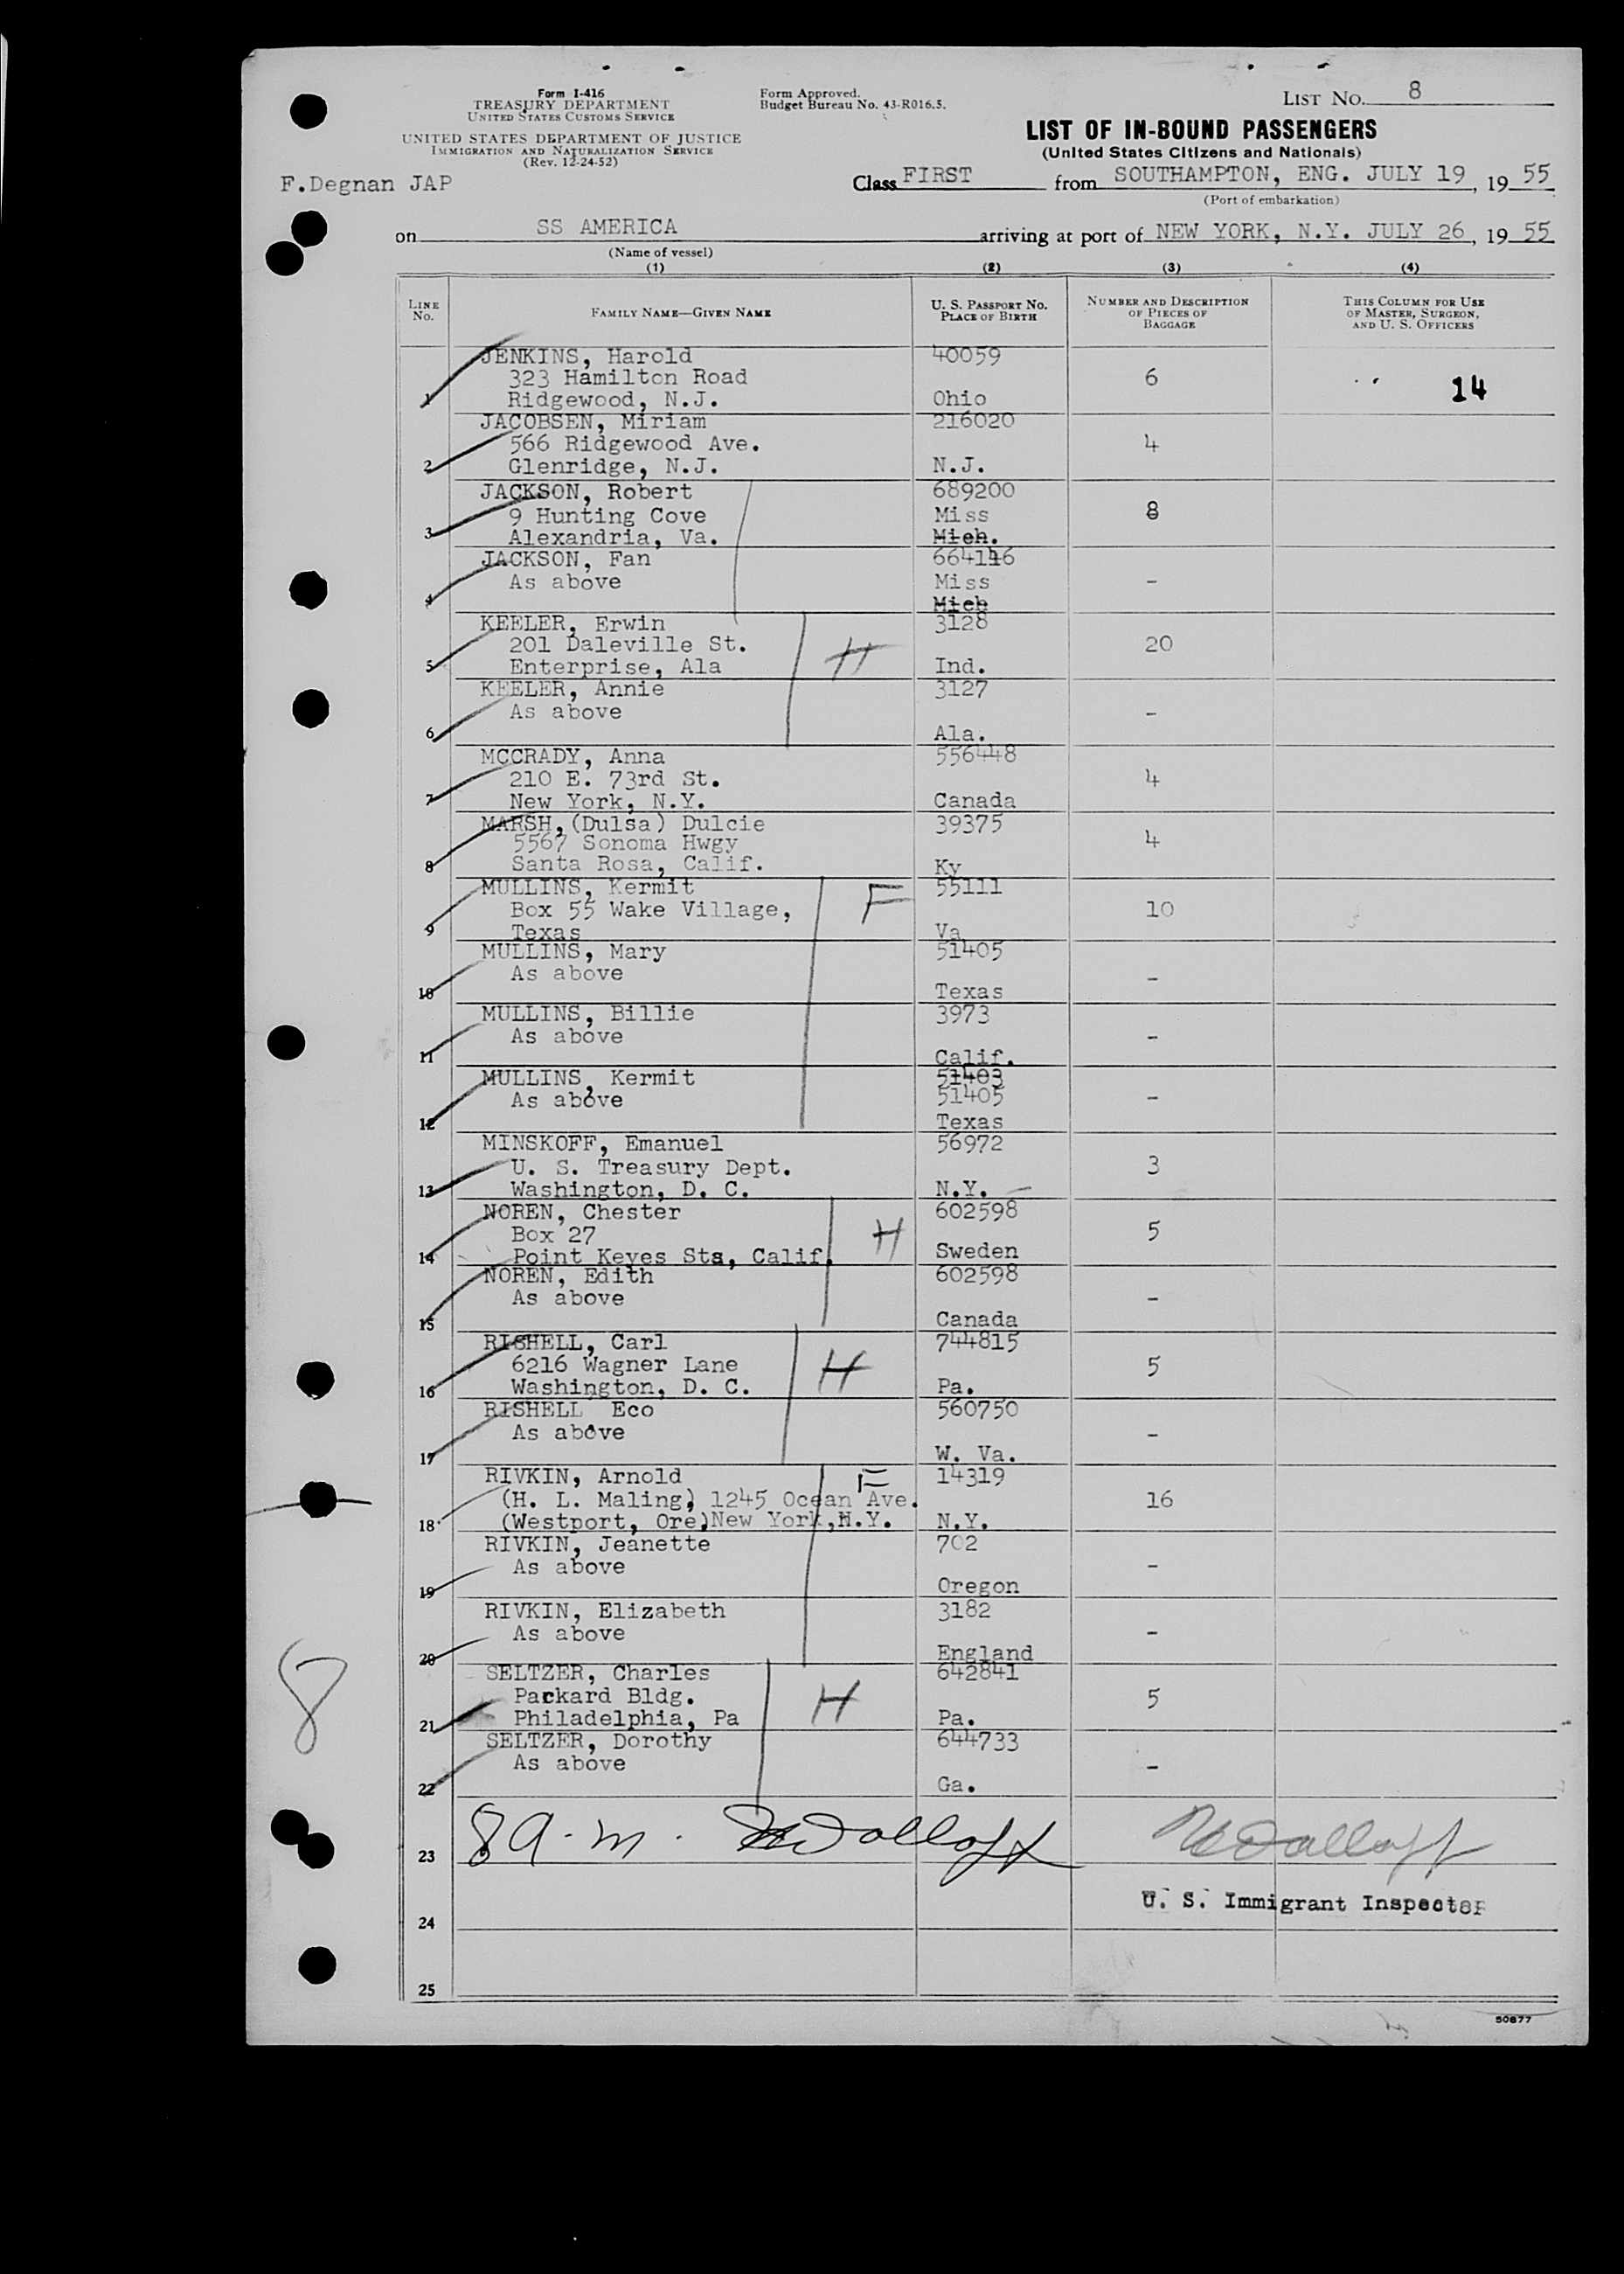 Form I-416
TREASURY DEPARTMENT
UNITED STATES CUSTOMS SERVICE
UNITED STATES DEPARTMENT OF JUSTICE
IMMIGRATION AND NATURALIZATION SERVICE
(Rev. 12-24-52)
Form Approved.
Budget Bureau No. 43-R016.5.
LIST NO. 8
LIST OF IN-BOUND PASSENGERS
(United States Citizens and Nationals)
F.Degnan JAP
Class FIRST from SOUTHAMPTON, ENG. JULY 19, 19 55
(Port of embarkation)
on SS AMERICA arriving at port of NEW YORK, N.Y. JULY 26, 19 55
(Name of vessel)
(1) (2) (3) (4)
LINE No. FAMILY NAME—GIVEN NAME U. S. PASSPORT NO. PLACE OF BIRTH NUMBER AND DESCRIPTION OF PIECES OF BAGGAGE THIS COLUMN FOR USE OF MASTER, SURGEON, AND U. S. OFFICERS
JENKINS, Harold 40059
323 Hamilton Road 6 14
1 Ridgewood, N.J. Ohio
JACOBSEN, Miriam 216020
566 Ridgewood Ave. 4
2 Glenridge, N.J. N.J.
JACKSON, Robert 689200
9 Hunting Cove Miss 8
3 Alexandria, Va. Mich.
JACKSON, Fan 664116
As above Miss -
4 Mich
KEELER, Erwin 3128
201 Daleville St. H 20
5 Enterprise, Ala Ind.
KEELER, Annie 3127
As above -
6 Ala.
MCCRADY, Anna 556448
210 E. 73rd St. 4
7 New York, N.Y. Canada
MARSH,(Dulsa) Dulcie 39375
5567 Sonoma Hwgy 4
8 Santa Rosa, Calif. Ky
MULLINS, Kermit F 55111
Box 55 Wake Village, 10
9 Texas Va
MULLINS, Mary 51405
As above -
10 Texas
MULLINS, Billie 3973
As above -
11 Calif.
MULLINS, Kermit 51403
As above 51405 -
12 Texas
MINSKOFF, Emanuel 56972
U. S. Treasury Dept. 3
13 Washington, D. C. N.Y.
NOREN, Chester 602598
Box 27 H 5
14 Point Keyes Sta, Calif. Sweden
NOREN, Edith 602598
As above -
15 Canada
RISHELL, Carl 744815
6216 Wagner Lane H 5
16 Washington, D. C. Pa.
RISHELL Eco 560750
As above -
17 W. Va.
RIVKIN, Arnold F 14319
(H. L. Maling) 1245 Ocean Ave. 16
18 (Westport, Ore)New York,N.Y. N.Y.
RIVKIN, Jeanette 702
As above -
19 Oregon
RIVKIN, Elizabeth 3182
As above -
20 England
SELTZER, Charles 642841
Packard Bldg. H 5
21 Philadelphia, Pa Pa.
SELTZER, Dorothy 644733
As above -
22 Ga.
8
23 8 a.m.
U. S. Immigrant Inspector
24
25
50877